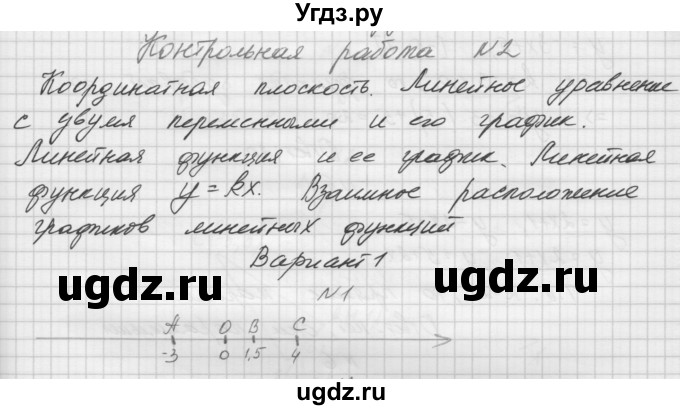 Угдз.ру
Контрольная работа №2
Координатная плоскость. Линейное уравнение
с двумя переменными и его график.
Линейная функция и ее график. Линейная
функция y=kx. Взаимное расположение
графиков линейных функций
Вариант 1
ugdz.ru ugdz.ru
№1
A O B C
-3 0 1,5 4
ugdz.ru